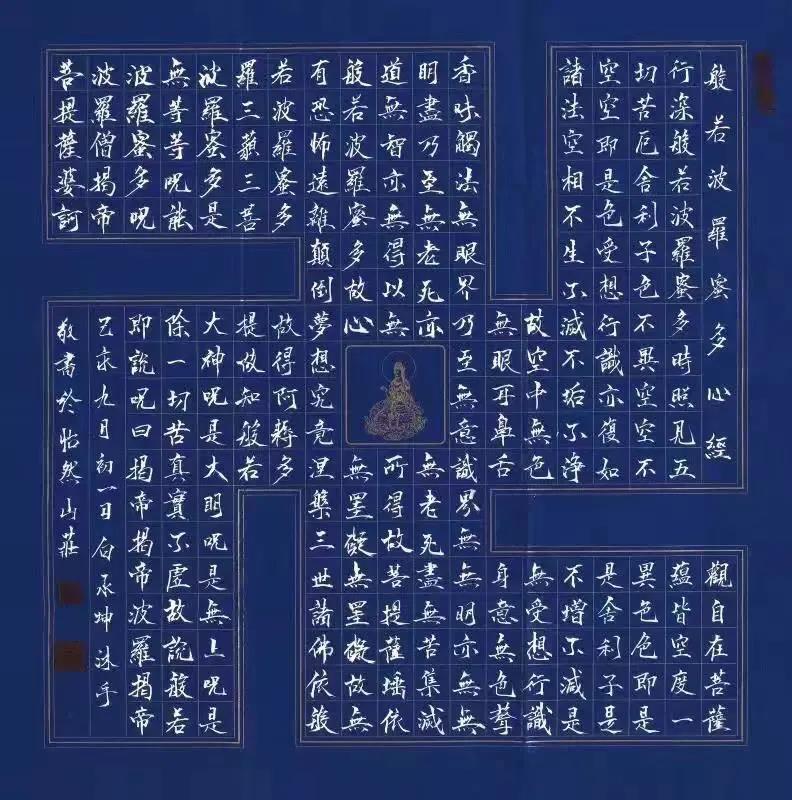 般若波羅蜜多心經
觀自在菩薩
行深般若波羅蜜多時照見五
蘊皆空度一
切苦厄舍利子色不異空空不
異色色即是
空空即是色受想行識亦復如
是舍利子是
諸法空相不生不減不垢不淨
不增不減是
故空中無色
無受想行識
無眼耳鼻舌
身意無色聲
香味觸法無眼界乃至無意識界無無明亦無無
明盡乃至無老死亦
無老死盡無苦集減
道無智亦無得以無
所得故菩提薩埵依
般若波羅蜜多故心
無罣礙無罣礙故無
有恐怖遠離顛倒夢想究竟涅槃三世諸佛依般
若波羅蜜多
故得阿耨多
羅三藐三菩
提故知般若
波羅蜜多是
大神呪是大明呪是無上呪是
無等等呪能
除一切苦真實不虛故說般若
波羅蜜多呪
即說呪曰揭帝揭帝波羅揭帝
波羅僧揭帝
菩提薩婆訶
己亥九月初一日白承坤沐手
敬書於怡然山莊